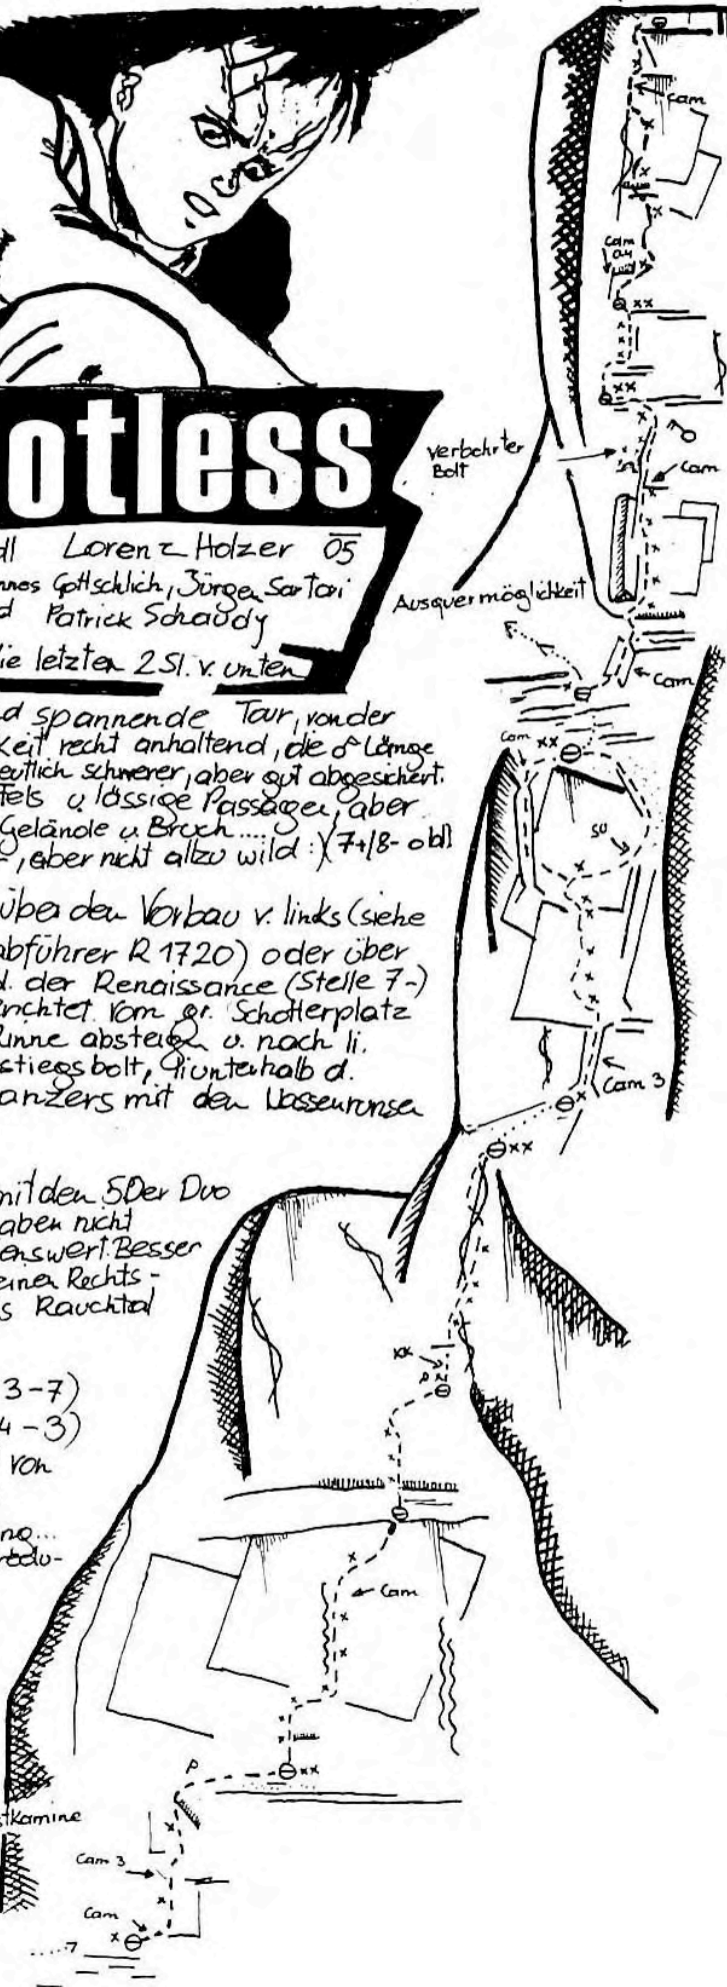 otless
Lorenz Holzer 05
Gottschlich, Jürgen Sartori
Patrick Schaudy
ie letzten 2 Sl. v. unten
d spannende Tour, von der
keit recht anhaltend, die 8te Länge
eutlich schwerer, aber gut abgesichert.
fels u. lässige Passagen, aber
Gelände u. Bruch....
, aber nicht allzu wild :) (7+/8- obl)
über den Vorbau v. links (siehe
abführer R 1720) oder über
d. der Renaissance (Stelle 7-)
richtet. Vom gr. Schotterplatz
inne absteigen u. nach li.
stiegsbolt, unterhalb d.
anzers mit den Wasserrunsen
mit den 50er Duo
aben nicht
enswert. Besser
einen Rechts-
s Rauchtal
3-7)
4-3)
von
ng...
Kamine
Cam
Cam
xx
xx
verbohrter
Bolt
Cam
Ausquermöglichkeit
Cam
Cam
xx
SU
Cam 3
xx
xx
P
Cam
P
xx
Cam 3
Cam